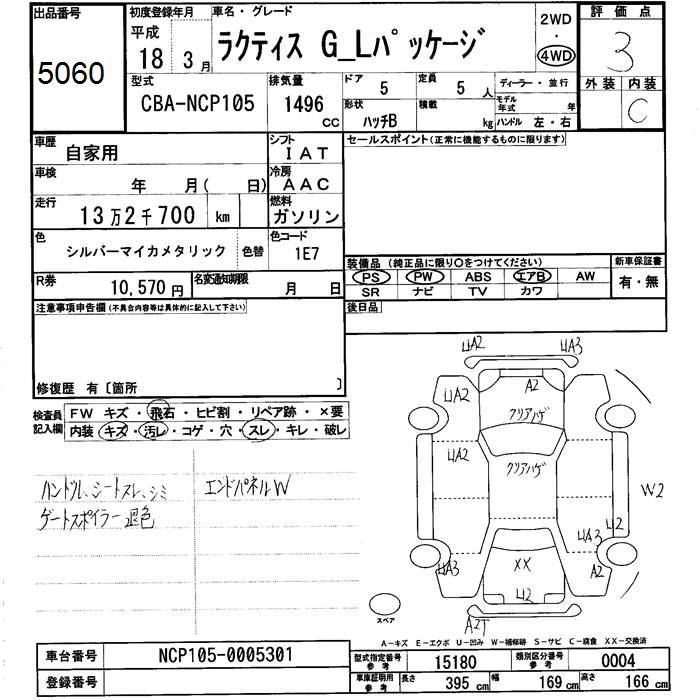 出品番号
5060
初度登録年月
平成
18 3月
車名・グレード
ラクティス G_Lパッケージ
2WD
・
4WD
評価点
3
型式
CBA-NCP105
排気量
1496
cc
ドア
5
定員
5 人
ディーラー・並行
外装 内装
C
形状
ハッチB
積載
kg
モデル年式
年
ハンドル 左・右
車歴
自家用
シフト
IAT
車検
年 月( 日)
冷房
AAC
走行
13万2千700 km
燃料
ガソリン
色
シルバーマイカメタリック
色替
色コード
1E7
R券
10,570円
名変通知期限
月 日
セールスポイント(正常に機能するものに限ります)
装備品 (純正品に限り○をつけてください)
新車保証書
PS PW ABS エアB AW
有・無
SR ナビ TV カワ
後日品
注意事項申告欄(不具合内容等は具体的に記入して下さい)
修復歴 有〔箇所 〕
検査員
記入欄
FW キズ・飛石・ヒビ割・リペア跡・×要
内装 キズ・汚レ・コゲ・穴・スレ・キレ・破レ
ハンドル、シートスレ、シミ
ゲートスポイラー退色
エンドパネルW
UA2
UA3
UA2
A2
クリアハゲ
UA2
クリアハゲ
W2
U2
UA3
UA3
XX
A2
U2
A2T
スペア
A-キズ E-エクボ U-凹み W-補修跡 S-サビ C-腐食 XX-交換済
車台番号
NCP105-0005301
登録番号
型式指定番号
参考
15180
類別区分番号
参考
0004
車庫証明用
参考
長さ
395 cm
幅
169 cm
高さ
166 cm